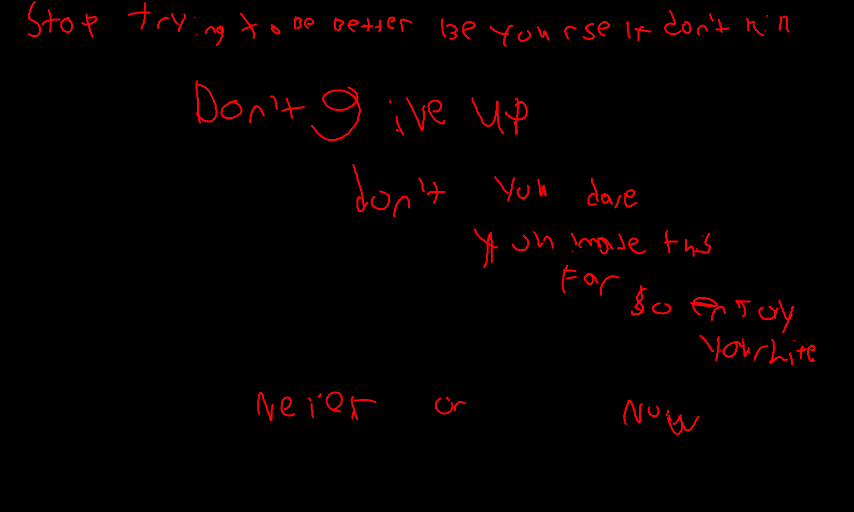 Stop trying to be better be yourself don't kin
Don't give up
don't you dare
you made this
far
so enjoy
your life
Never or now